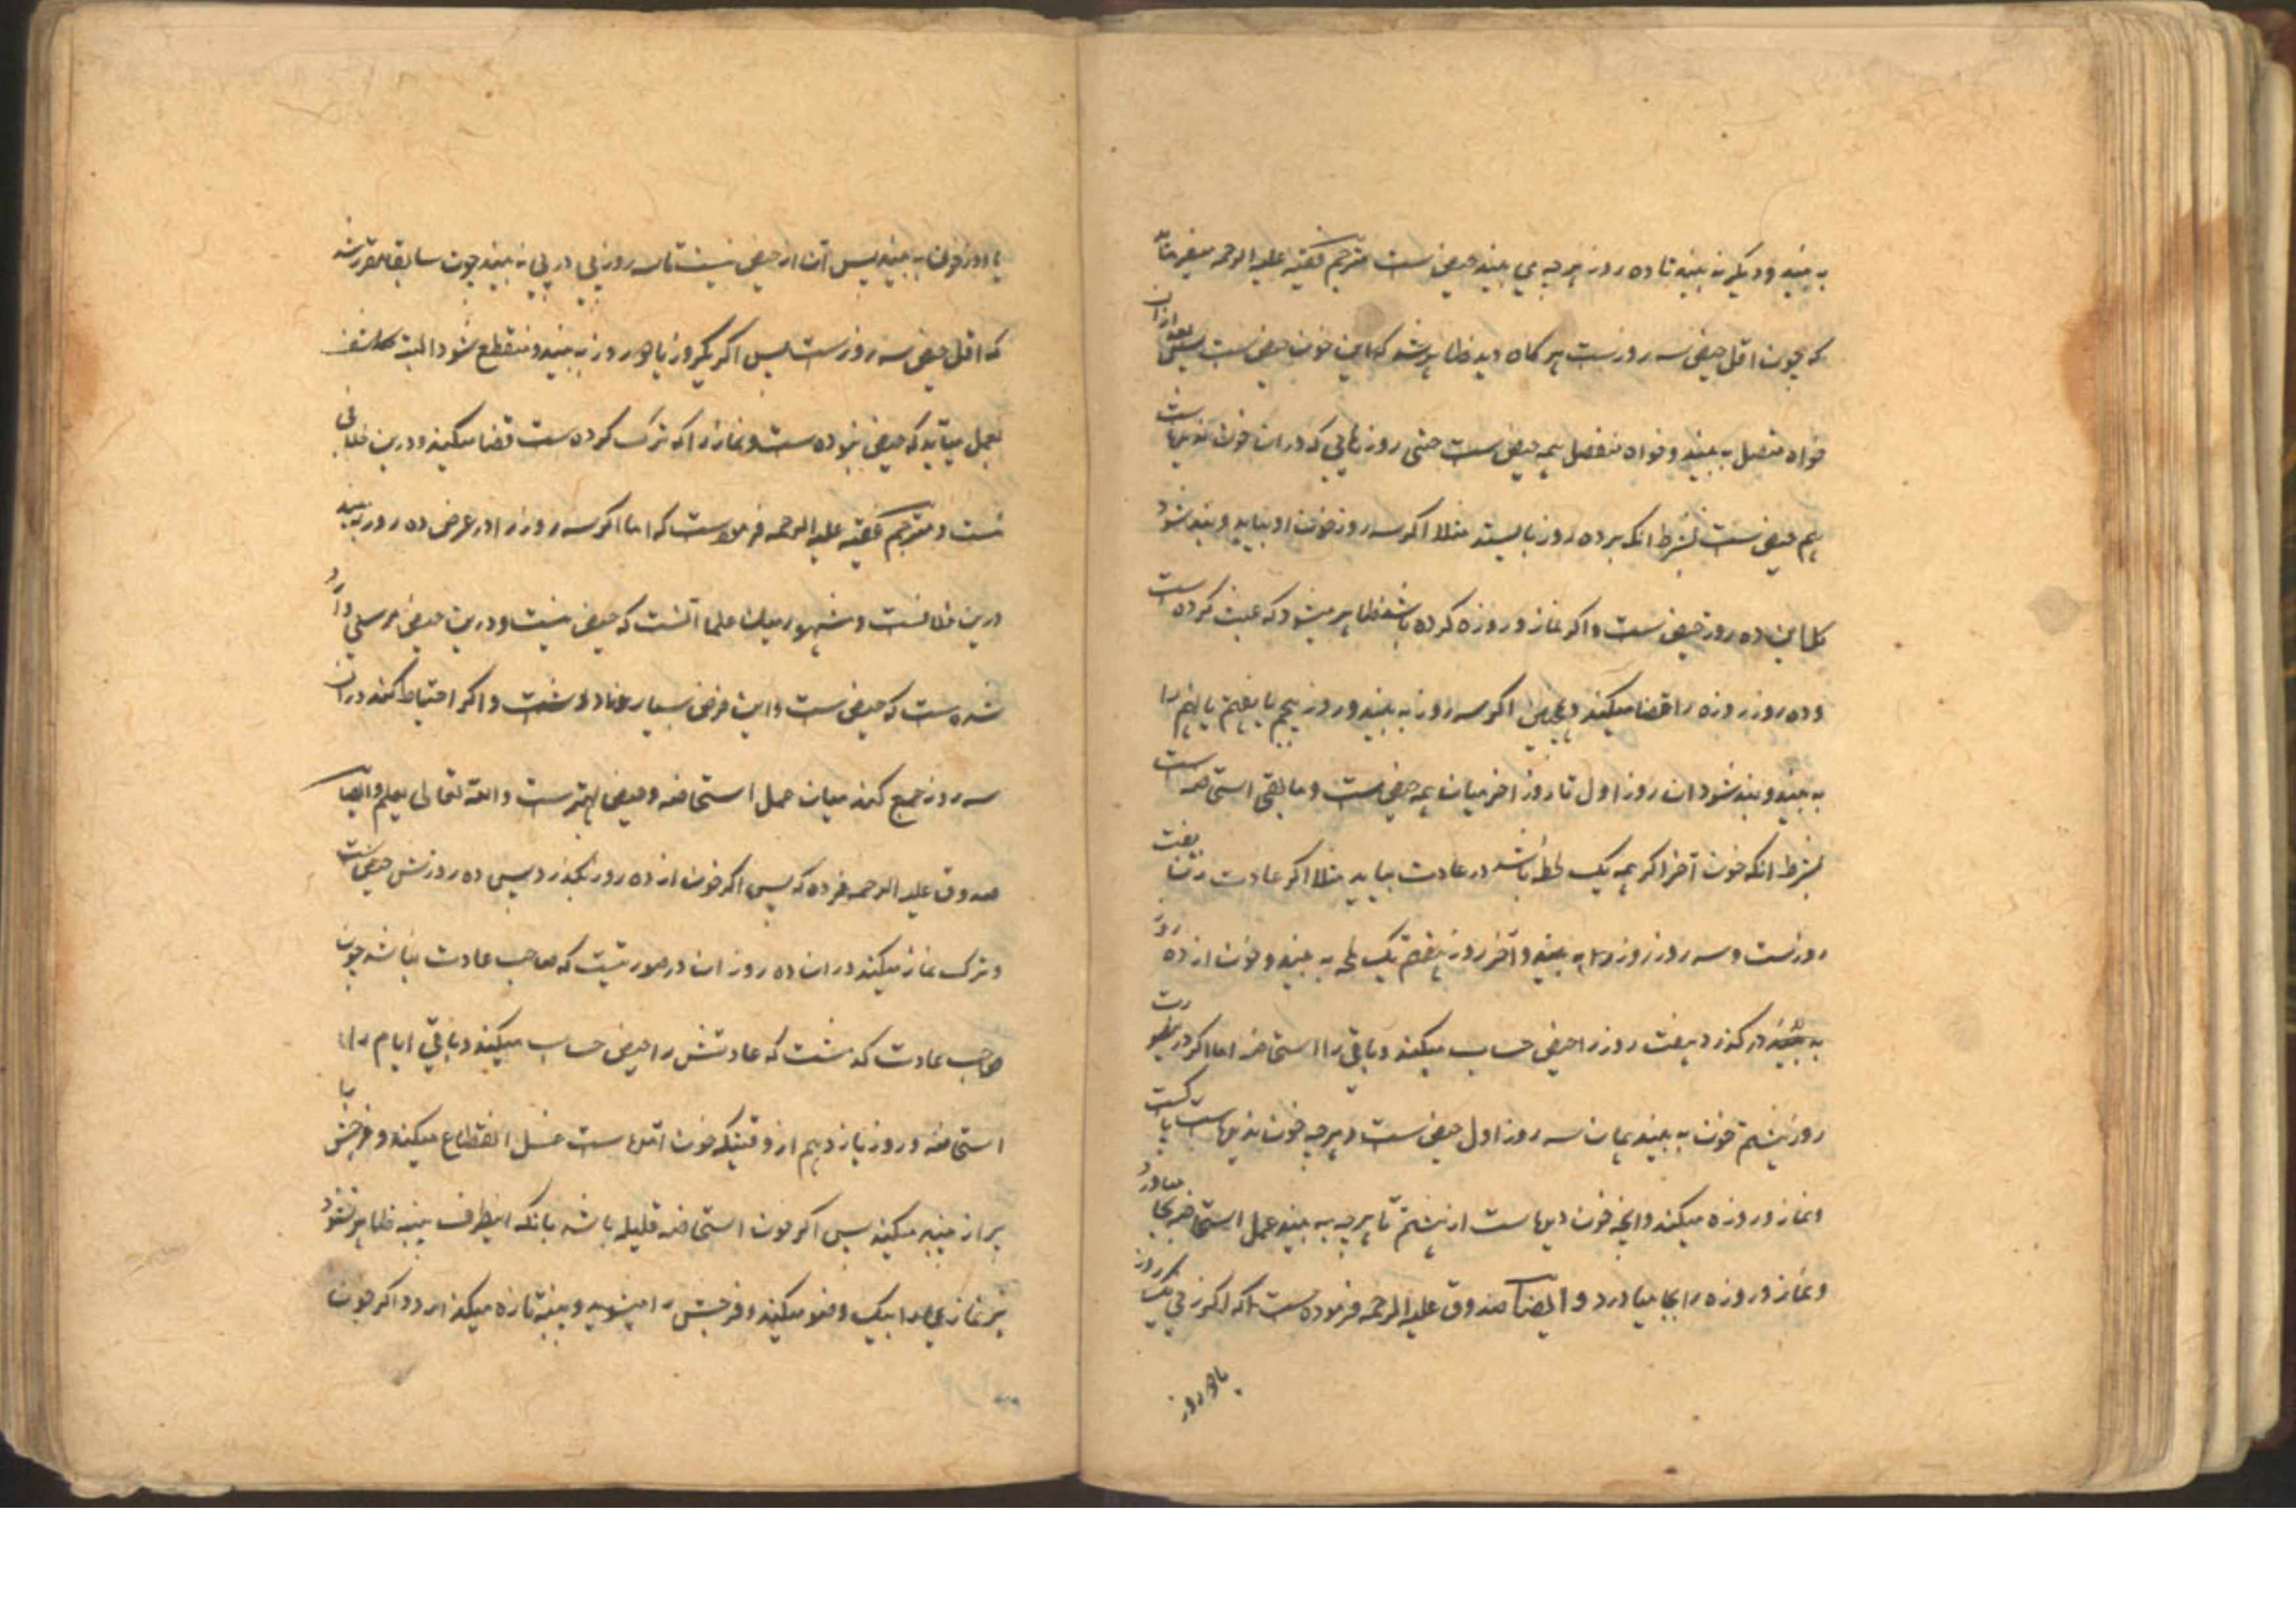 به بیند و دیگر نه بیند تا ده روز هر چه می بیند حیض ست مترجم فقیه علیه الرحمه میفرماید
که چون اقل حیض سه روزست هر کاه دید ظاهر شد که این خون حیض ست بعد ازان
خواه متصل به بیند و خواه منفصل همه حیض ست حتی روزهایی که در ان خون ندیده است
هم حیض ست بشرط انکه بر ده روز بایستد مثلا اکر سه روز خون او بیاید و بند شود
کل این ده روز حیض ست و اکر نماز و روزه کرده باشد ظاهر میشود که عبث کرده است
و ده روز روزه را قضا میکند و همچنین اکر سه روز به بیند و روز پنجم یا هفتم یا نهم را
به بیند و بند شود ان روز اول تا روز اخر میان همه حیض ست و ما بقی استحاضه است
بشرط انکه خون آخر اکر همه یک لحظه باشد در عادت بیاید مثلا اکر عادت زن تا هفت
روزست و سه روز روز به بیند و آخر روز هفتم یک لمحه به بیند و خون از ده روز
در کذرد هفت روز را حیض حساب میکند و باقی را استحاضه اما اکر در صورت
روز هشتم خون به بیند همان سه روز اول حیض ست و هر چه خون ندیده است پاکست
و نماز و روزه میکند و انچه خون دیده است از هشتم تا هر چه به بیند عمل استحاضه بجا میاورد
و نماز و روزه را بجا میاورد و ایضا صدوق علیه الرحمه فرموده ست که اکر زنی یک روز
یا دو روز
یا دو روز خون به بیند پس آن از حیض نیست تا سه روز پی در پی نه بیند چون سابقا مقرر شد
که اقل حیض سه روزست پس اکر یکروز یا دو روز به بیند و منقطع شود البته کاشف
بعمل میآید که حیض نبوده ست و نماز را که ترک کرده ست قضا میکند و درین خلافی
نیست و مترجم فقیه علیه الرحمه فرموده ست که اما اکر سه روز را در عرض ده روز به بیند
درین خلافست و مشهور میان علما آنست که حیض نیست و درین حیض مرسلی وارد
شده ست که حیض ست و این فرض بسیار نادرست و اکر احتیاط کند در ان
سه روز جمع کند میان عمل استحاضه و حیض بهترست و الله تعالی یعلم و ایضا
صدوق علیه الرحمه فرموده که پس اکر خون از ده روز بکذرد پس ده روزش حیض است
و ترک نماز میکند در ان ده روز ان در صورتیست که صاحب عادت نباشد چون
صاحب عادت کذشت که عادتش را حیض حساب میکند و باقی ایام را
استحاضه و روز یازدهم از وقتیکه خون اول دیده است غسل انقطاع میکند و فرجش را
پر از پنبه میکند پس اکر خون استحاضه قلیله باشد بانکه از طرف پنبه ظاهر نشود
هر نمازی را بیک وضو میکند و فرجش را میشوید و پنبه تازه میکذارد و اکر خون